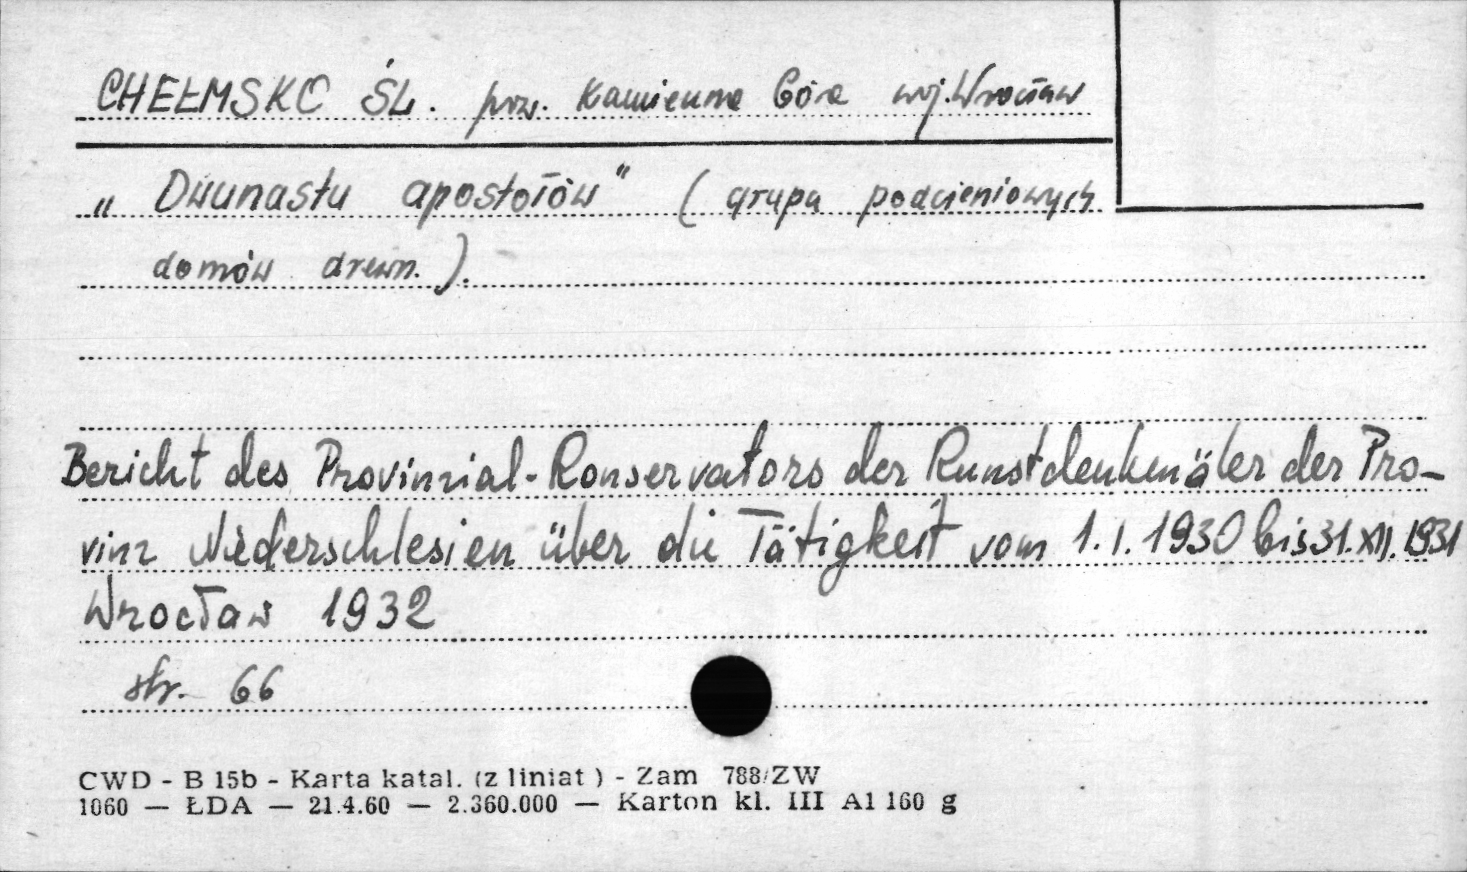 CHEŁMSKO ŚL. pow. Kamienna Góra woj. Wrocław
„Dwunastu apostołów” (grupa podcieniowych
domów drewn.).
Bericht des Provinzial-Konservators der Kunstdenkmäler der Pro-
vinz Niederschlesien über die Tätigkeit vom 1.I.1930 bis 31.XII.1931
Wrocław 1932
str. 66
CWD - B 15b - Karta katal. (z liniat) - Zam 788/ZW
1060 — ŁDA — 21.4.60 — 2.360.000 — Karton kl. III A1 160 g